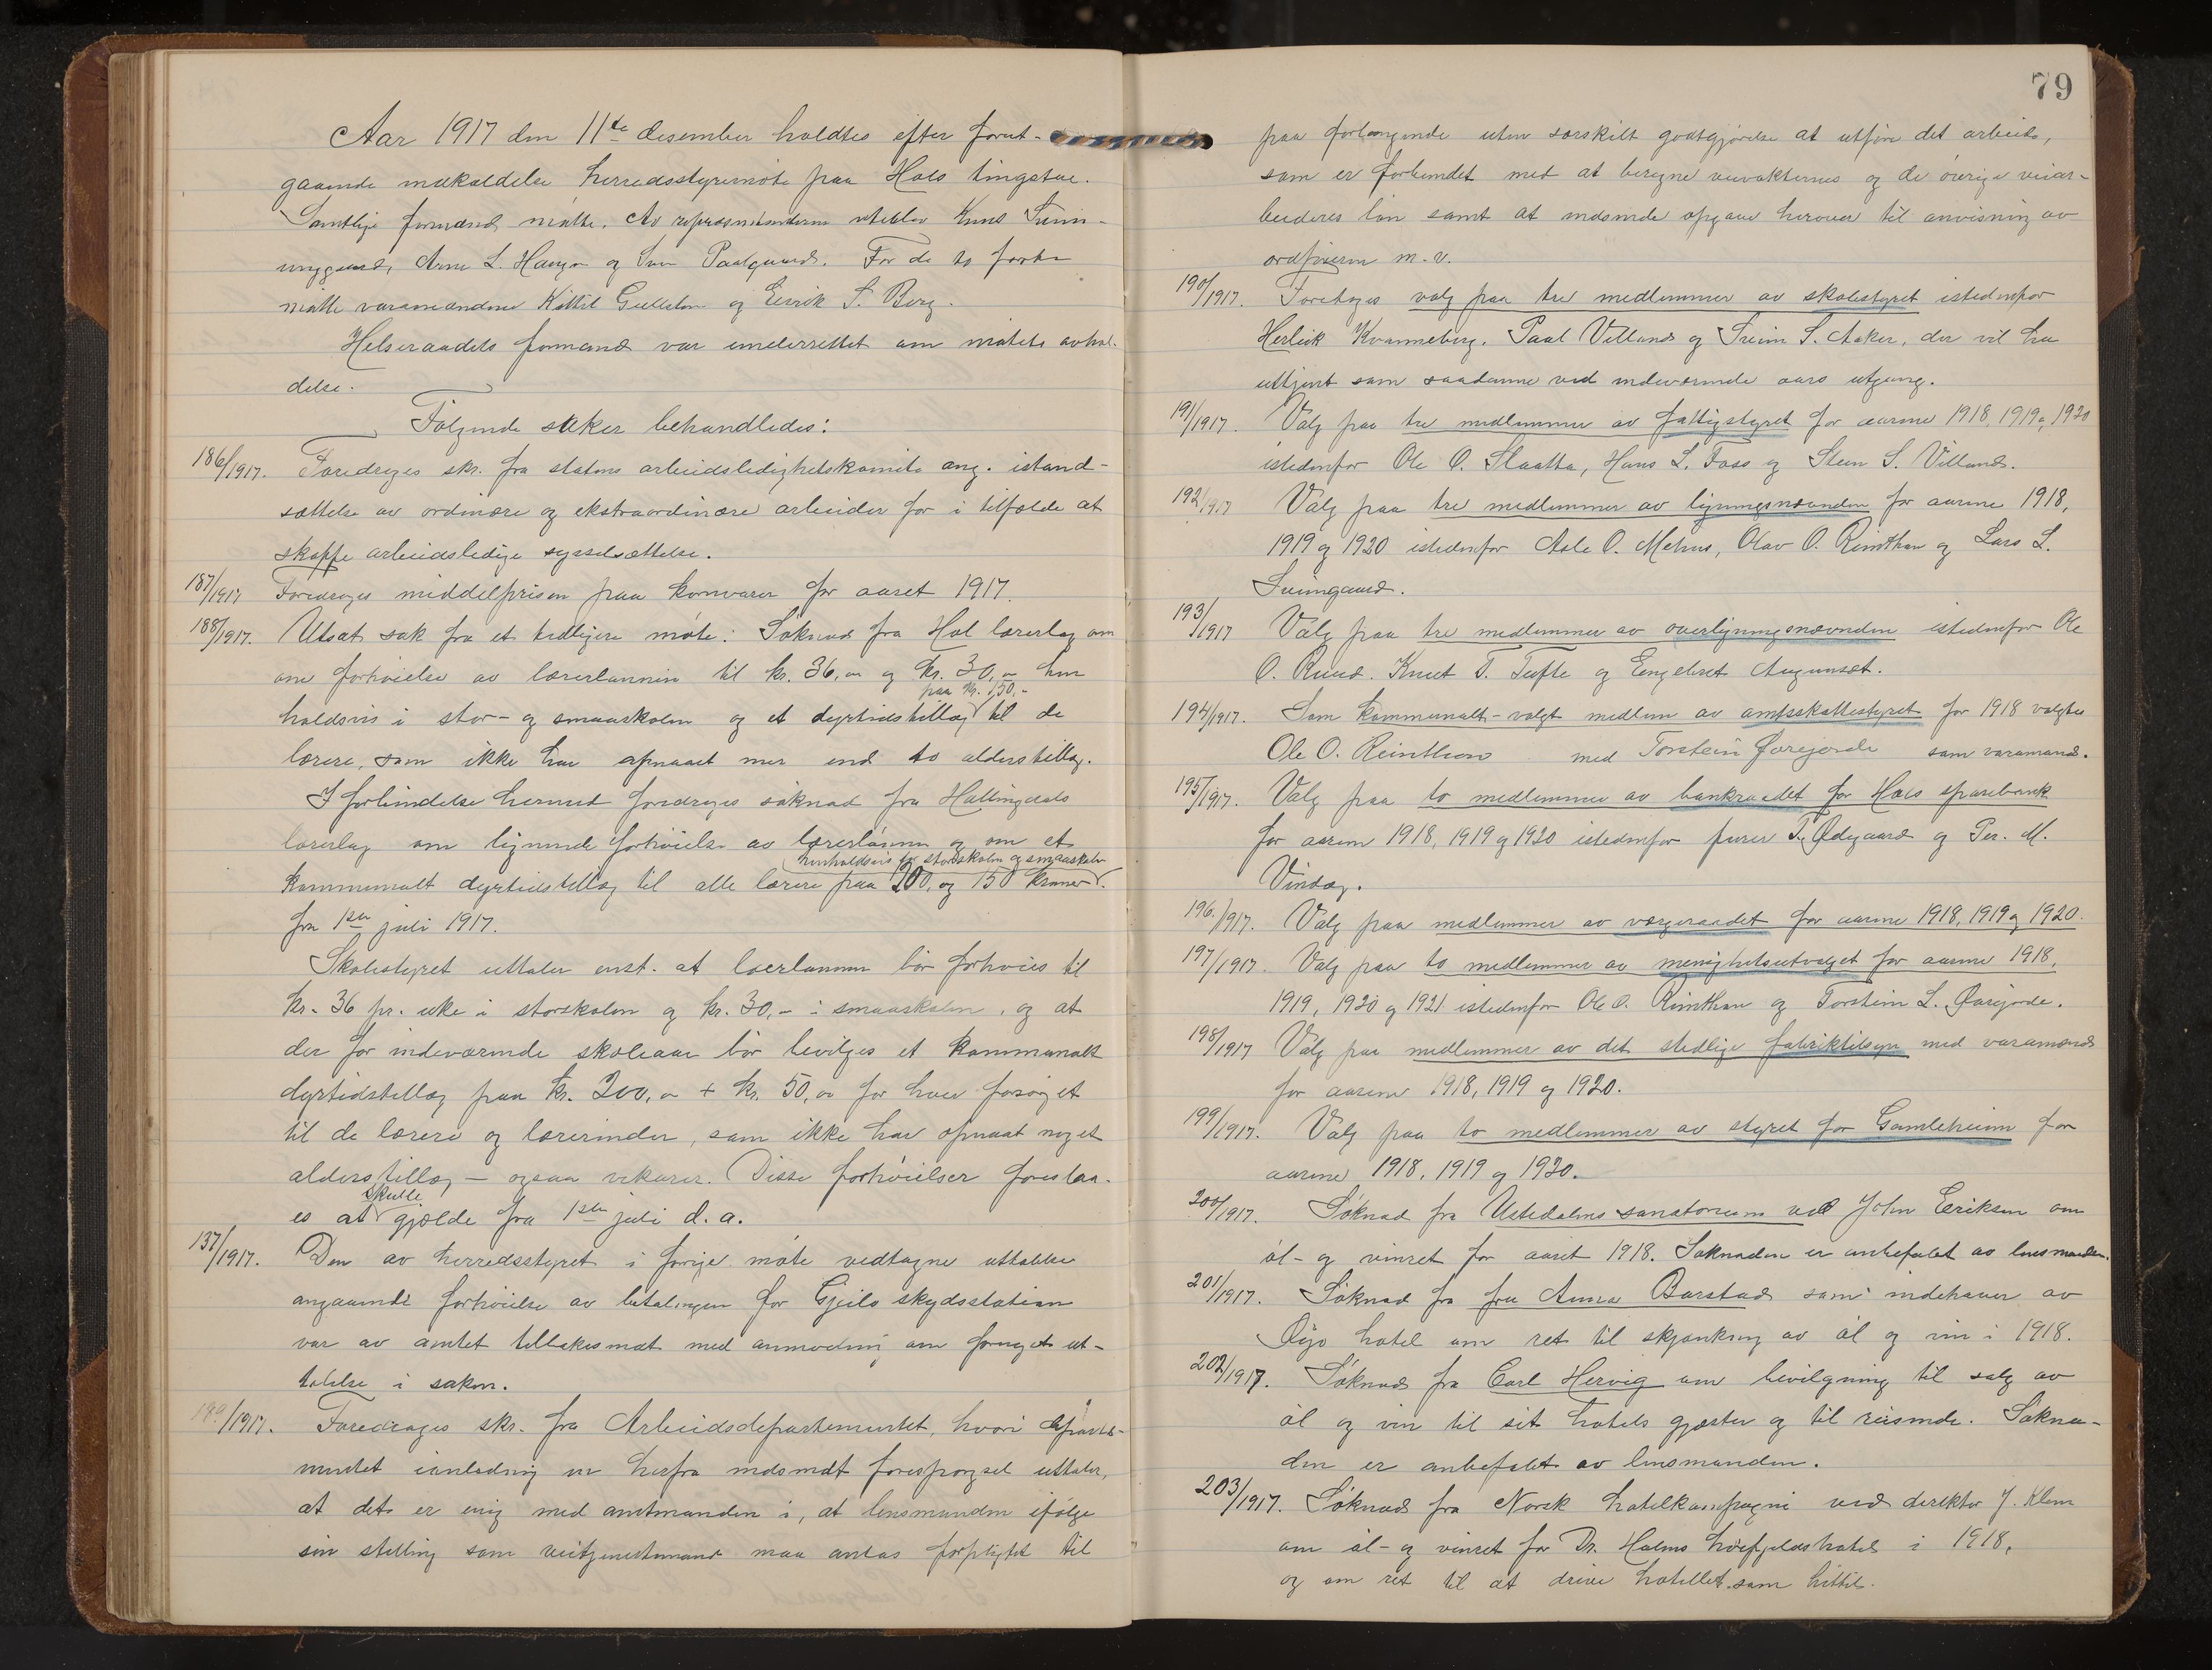 Aar 1917 den 11te desember holdtes efter forut-
gaaende indkaldelse herredsstyremöte paa Hols tingstue.
Samtlige formænd mötte. Av repræsentanterne uteblev Knud Svein-
unggaard, Arne L. Haugen og Paalgaard. For de to første
mötte varamændene Kittil og Eirik S. Berg.
Helseraadets formand var underrettet om mötets avhol-
delse.
Følgende saker behandledes:
186/1917. Foredroges skr. fra statens arbeidsledighetskomite ang. istand-
sættelse av ordinære og ekstraordinære arbeider for i tilfælde at
skaffe arbeidsledige sysselsættelse.
187/1917 Foredroges middelprisen paa kornvarer for aaret 1917.
188/1917. Utsat sak fra et tidligere möte: Söknad fra Hol lærerlag om
om forhöielse av lærerlönnen til kr. 36,00 og kr. 30,00 hen
paa kr. 150.-
holdsvis i stor- og smaaskolen og et dyrtidstillæg til de
lærere, som ikke har opnaaet mer end to alderstillæg.
I forbindelse hermed foredroges söknad fra Hallingdals
lærerlag om lignende forhöielse av lærerlönnen og om et
henholdsvis for storskolen og smaaskolen
kommunalt dyrtidstillæg til alle lærere paa 200, og 150 kroner
fra 1ste juli 1917.
Skolestyret uttaler enst. at lærerlönnen bör forhöies til
kr. 36 pr. uke i storskolen og kr. 30,- i smaaskolen, og at
der for indeværende skoleaar bör bevilges et kommunalt
dyrtidstillæg paa kr. 200,00 + kr. 50,00 for hver forsörget
til de lærere og lærerinder, som ikke har opnaat noget
alderstillæg — ogsaa vikarer. Disse forhöielser foreslaa-
skulle
es at gjælde fra 1ste juli d.a.
137/1917. Den av herredsstyret i forrige möte vedtagne uttalelse
angaaende forhöielse av betalingen for Gjeilo skydsstation
var av amtet tilbakesendt med anmodning om fornyet ut-
talelse i saken.
/1917. Foredroges skr. fra Arbeidsdepartementet, hvori departe-
mentet i anledning en herfra indsendt forespörgsel uttaler,
at det er enig med amtmanden i, at lensmanden ifölge
sin stilling som veitjenestemand maa antas forpligtet til
79
paa forlangende uten særskilt godtgjörelse at utföre det arbeide,
som er forbundet med at beregne veivokternes og de övrige veiar-
beideres lön samt at indsende opgave herover til anvisning av
ordföreren m.v.
190/1917. Foretages valg paa tre medlemmer av skolestyret istedenfor
Herleik Kvanneberg, Paal Villand og Svein S. Aaker, der vil ha
uttjent som saadanne ved indeværende aars utgang.
191/1917. Valg paa tre medlemmer av fattigstyret for aarene 1918, 1919 og 1920
istedenfor Ole O. Slaatta, Hans L. Foss og Stein S. Villand.
192/1917 Valg paa tre medlemmer av ligningsnævnden for aarene 1918,
1919 og 1920 istedenfor Asle O. Mehus, Olav O. Reinthon og Lars L.
Sveingaard.
193/1917 Valg paa tre medlemmer av overligningsnævnden istedenfor Ole
O. Ruud. Knut T. Tufte og Engebret Augunset.
194/1917. Som kommunalt-valgt medlem av amtsskattestyret for 1918 valgtes
Ole O. Reinthon med Torstein Örejorde som varamand.
195/1917. Valg paa to medlemmer av bankraadet for Hols sparebank
for aarene 1918, 1919 og 1920 istedenfor furer T. Ödegaard og Per. M.
Vindeg.
196./1917. Valg paa medlemmer av værgeraadet for aarene 1918, 1919 og 1920.
197/1917. Valg paa to medlemmer av menighetsutvalget for aarene 1918,
1919, 1920 og 1921 istedenfor Ole O. Reinthon og Torstein L. Örejorde.
198/1917 Valg paa medlemmer av det stedlige fabriktilsyn med varamænd
for aarene 1918, 1919 og 1920.
199/1917. Valg paa to medlemmer av styret for Gamleheimen for
aarene 1918, 1919 og 1920.
200/1917. Söknad fra Ustedalens sanatorium ved John Eriksen om
öl- og vinret for aaret 1918. Söknaden er anbefalet av lensmanden.
201/1917. Söknad fra fru Anna Barstad som indehaver av
Öyo hotel om ret til skjænking av öl og vin i 1918.
202/1917. Söknad fra Carl Hervig om bevilgning til salg av
öl og vin til sit hotels gjæster og til reisende. Sökna-
den er anbefalet av lensmanden.
203/1917. Söknad fra Norsk hotelkompagni ved direktör J. Klem
om öl- og vinret for Dr. Holms höifjeldshotel i 1918,
og om ret til at drive hotellet som hittil.